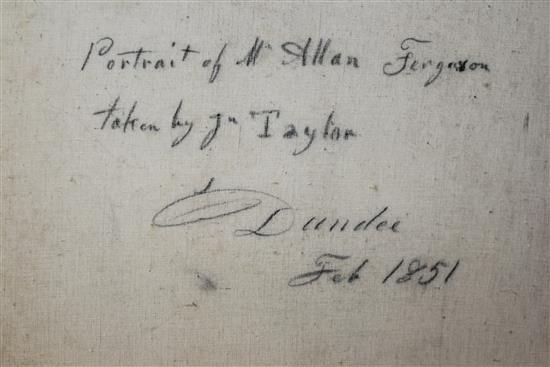 Portrait of Mr Allan Ferguson
taken by Jn Taylor
Dundee
Feb 1851